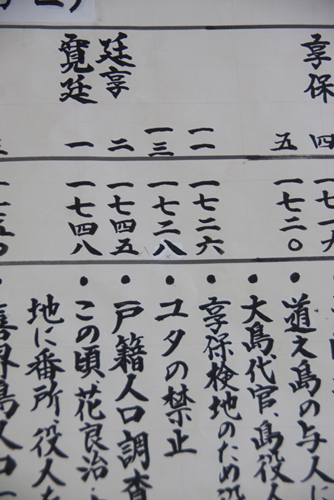 享保 四 一七一九
五 一七二〇 ・道之島の与人に
・大島代官、島役人
一一 一七二六 ・享保検地のため
一三 一七二八 ・ユタの禁止
延享 二 一七四五 ・戸籍人口調査
寛延 一 一七四八 ・この頃、花良治
地に番所、役人を
三 一七五〇 ・喜界島人口